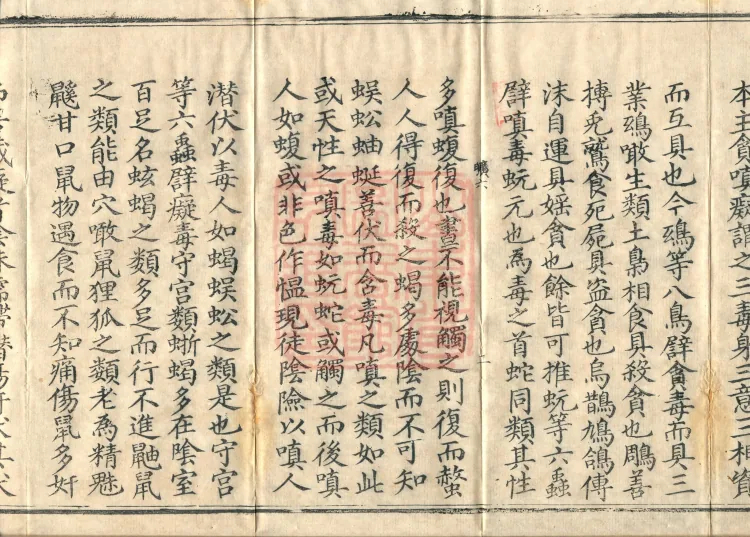 本主貪嗔癡謂之三毒身三意三相資
而互具也今鴟等八鳥譬貪毒而具三
業鴟噉生類土梟相食具殺貪也鵰善
搏兎鷲食死屍具盜貪也烏鵲鳩鴿傳
沫自運具婬貪也餘皆可推蚖等六蟲
譬嗔毒蚖元也為毒之首蛇同類其性
多嗔蝮復也晝不能視觸之則復而螫
人人得復而殺之蝎多處陰而不可知
蜈蚣蚰蜒善伏而含毒凡嗔之類如此
或天性之嗔毒如蚖蛇或觸之而後嗔
人如蝮或非色作愠現徒陰險以嗔人
潜伏以毒人如蝎蜈蚣之類是也守宮
等六蟲譬癡毒守宮類蜥蝎多在陰室
百足名蚿蝎之類多足而行不進鼬鼠
之類能由穴噉鼠狸狐之類老為精魅
鼷甘口鼠物遇食而不知痛傷鼠多奸